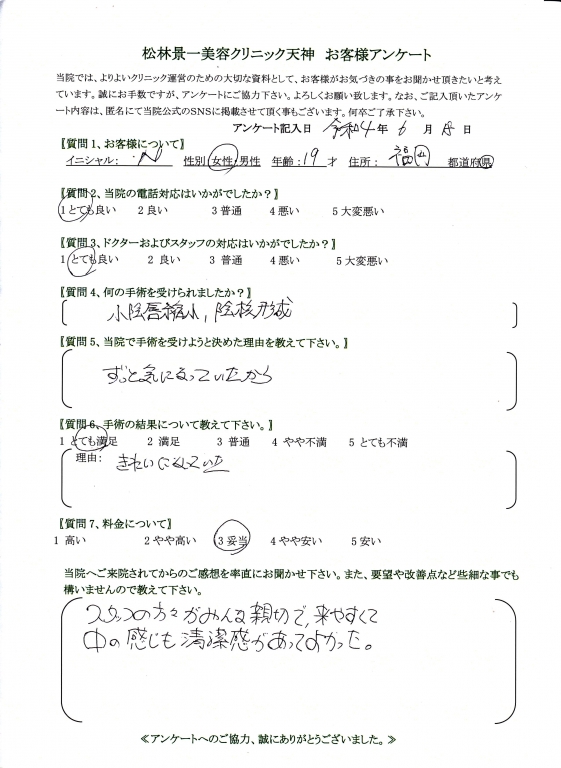 松林景一美容クリニック天神　お客様アンケート
当院では、よりよいクリニック運営のための大切な資料として、お客様がお気づきの事をお聞かせ頂きたいと考え
ています。誠にお手数ですが、アンケートにご協力下さい。よろしくお願い致します。なお、ご記入頂いたアンケ
ート内容は、匿名にて当院公式のSNSに掲載させて頂く事もございます。何卒ご了承下さい。
アンケート記入日　令和4年 6 月 日
〖質問1、お客様について〗
イニシャル： N 性別 女性・男性 年齢：19 才 住所： 福岡 都道府県
〖質問2、当院の電話対応はいかがでしたか？〗
1 とても良い 2 良い 3 普通 4 悪い 5 大変悪い
〖質問3、ドクターおよびスタッフの対応はいかがでしたか？〗
1 とても良い 2 良い 3 普通 4 悪い 5 大変悪い
〖質問4、何の手術を受けられましたか？〗
小陰唇縮小, 陰核形成
〖質問5、当院で手術を受けようと決めた理由を教えて下さい。〗
ずっと気になっていたから
〖質問6、手術の結果について教えて下さい。〗
1 とても満足 2 満足 3 普通 4 やや不満 5 とても不満
理由： きれいになっていた
〖質問7、料金について〗
1 高い 2 やや高い 3 妥当 4 やや安い 5 安い
当院へご来院されてからのご感想を率直にお聞かせ下さい。また、要望や改善点など些細な事でも
構いませんので教えて下さい。
スタッフの方々がみんな親切で,来やすくて
中の感じも清潔感があってよかった。
≪アンケートへのご協力、誠にありがとうございました。≫